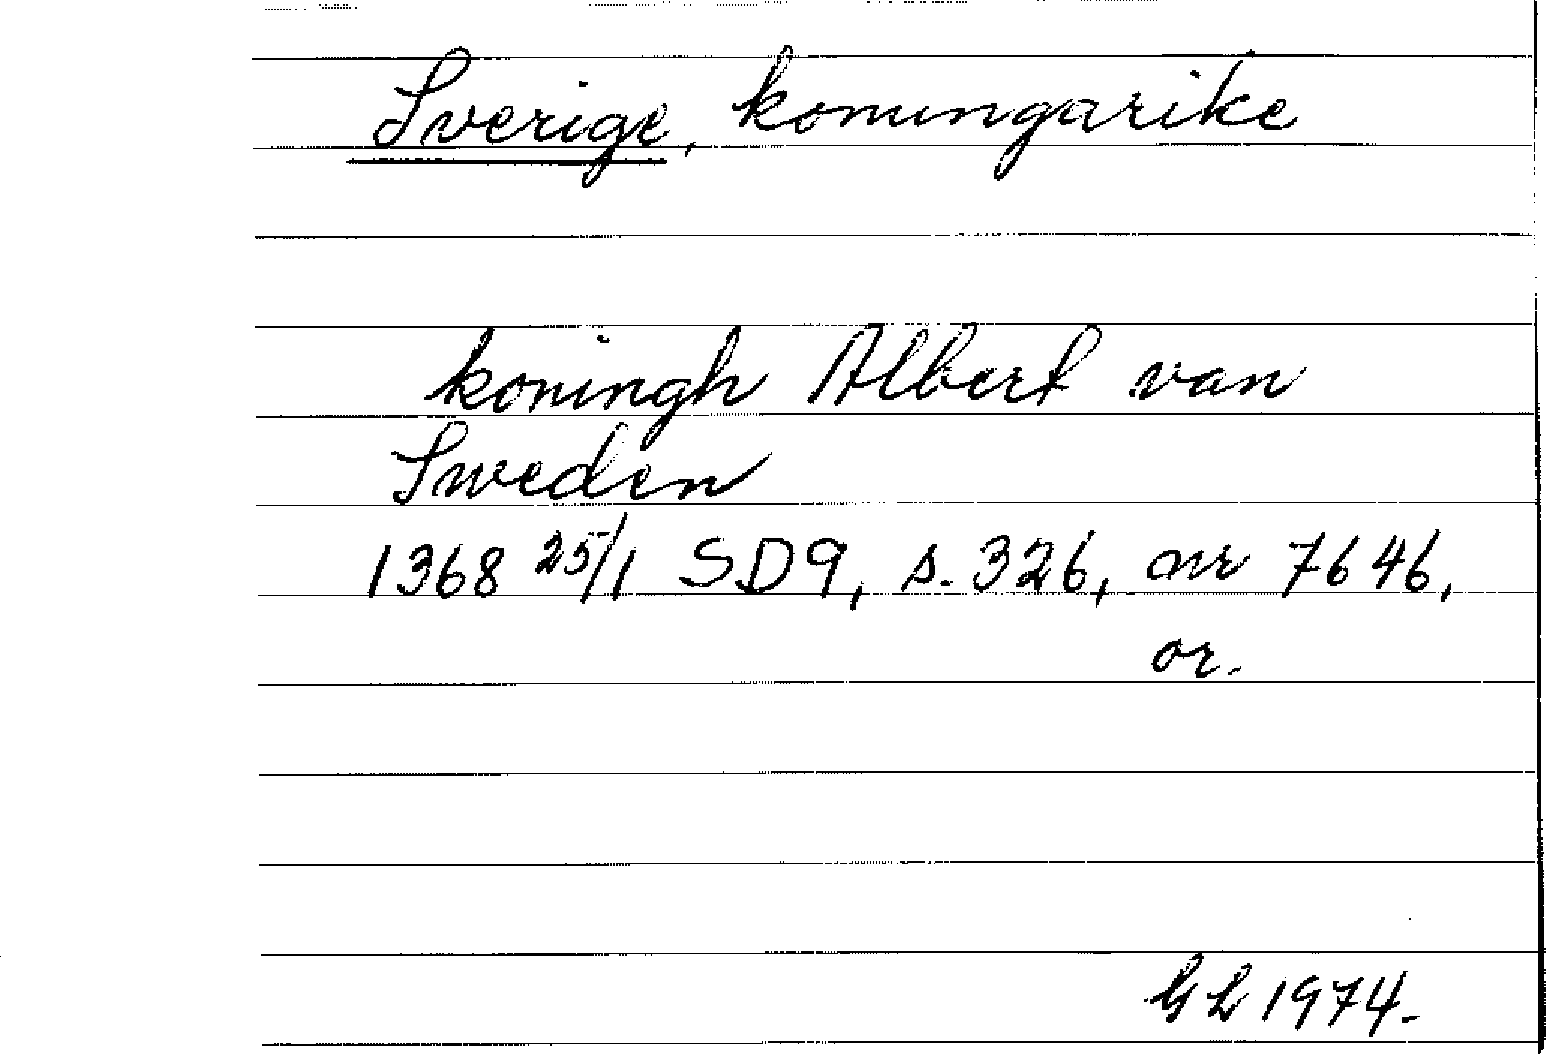 Sverige, konungarike
koningh Albert van
Sweden
1368 25/1 SD9, s. 326, nr 7646,
or.
GL 1974.